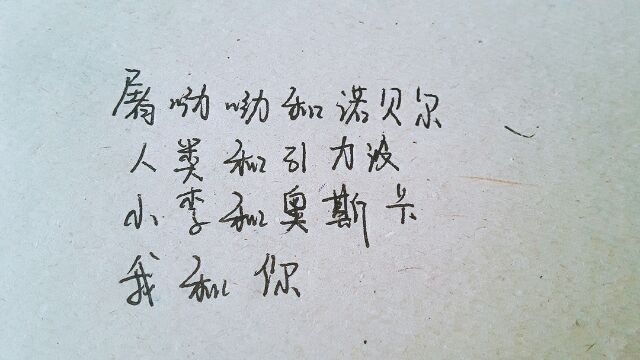 屠呦呦和诺贝尔
人类和引力波
小李和奥斯卡
我和你